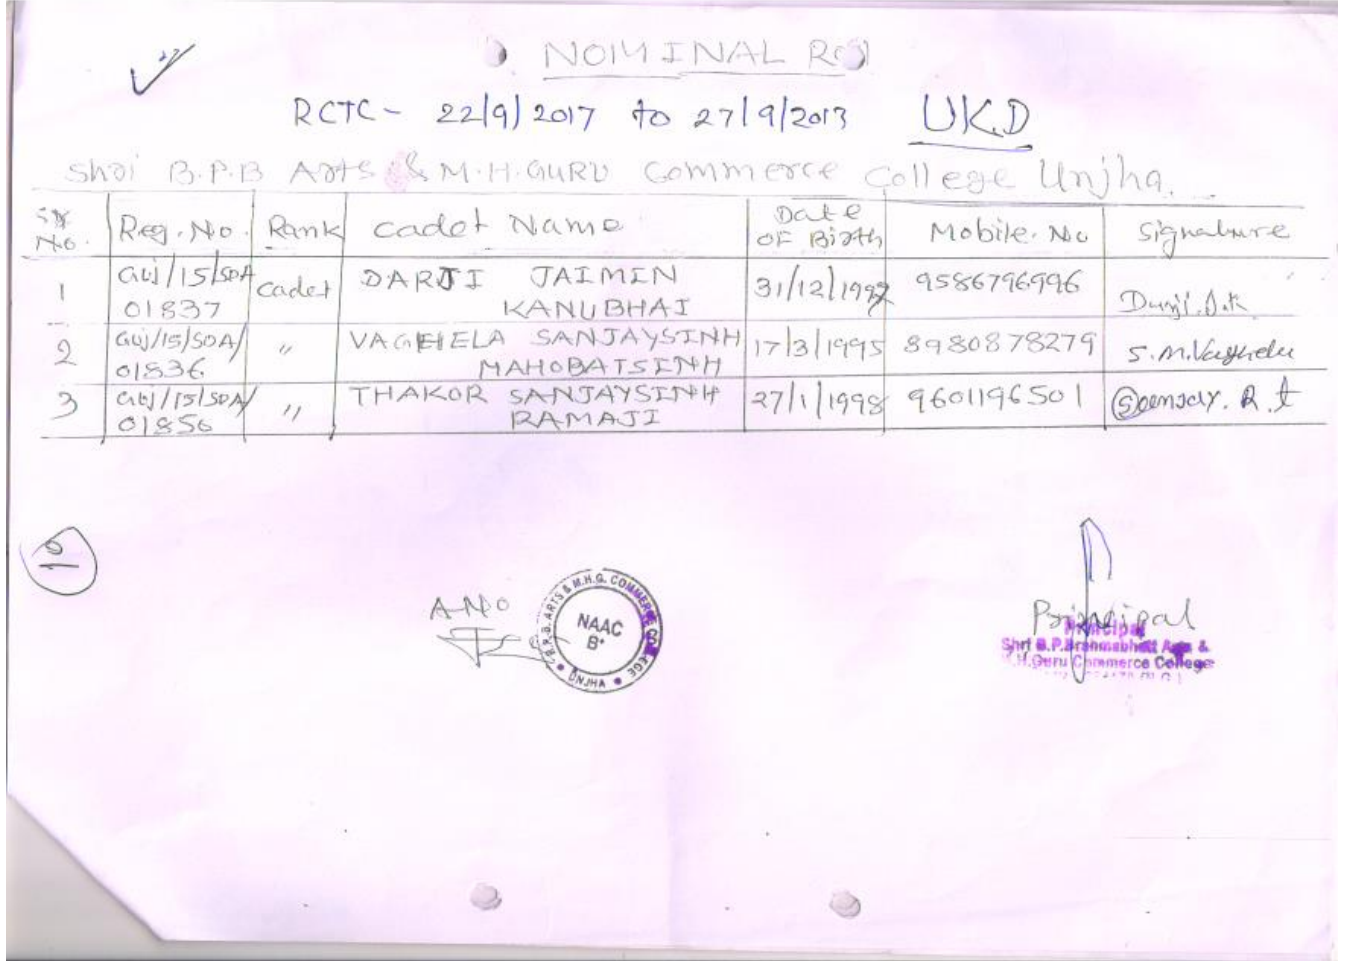 NOMINAL ROl
RCTC - 22/9/2017 to 27/9/2013 UKD
Shri B.P.B Arts & M.H.GURU Commerce College Unjha.
Sr No. Reg. No. Rank Cadet Name Date OF Birth Mobile. No Signature
1 Guj/15/SDA 01837 Cadet DARJI JAIMIN KANUBHAI 31/12/1997 9586796996 Darji.J.K
2 Guj/15/SDA/ 01836 〃 VAGHELA SANJAYSINH MAHOBATSINH 17/3/1995 8980878279 S.M.Vaghela
3 Guj/15/SDA/ 01856 〃 THAKOR SANJAYSINH RAMAJI 27/1/1998 9601196501 R.t
ANO
B.P.B. ARTS & M.H.G. COMMERCE COLLEGE
NAAC
B+
UNJHA
Principal
Principal
Shri B.P.Brahmabhatt Arts &
M.H.Guru Commerce College